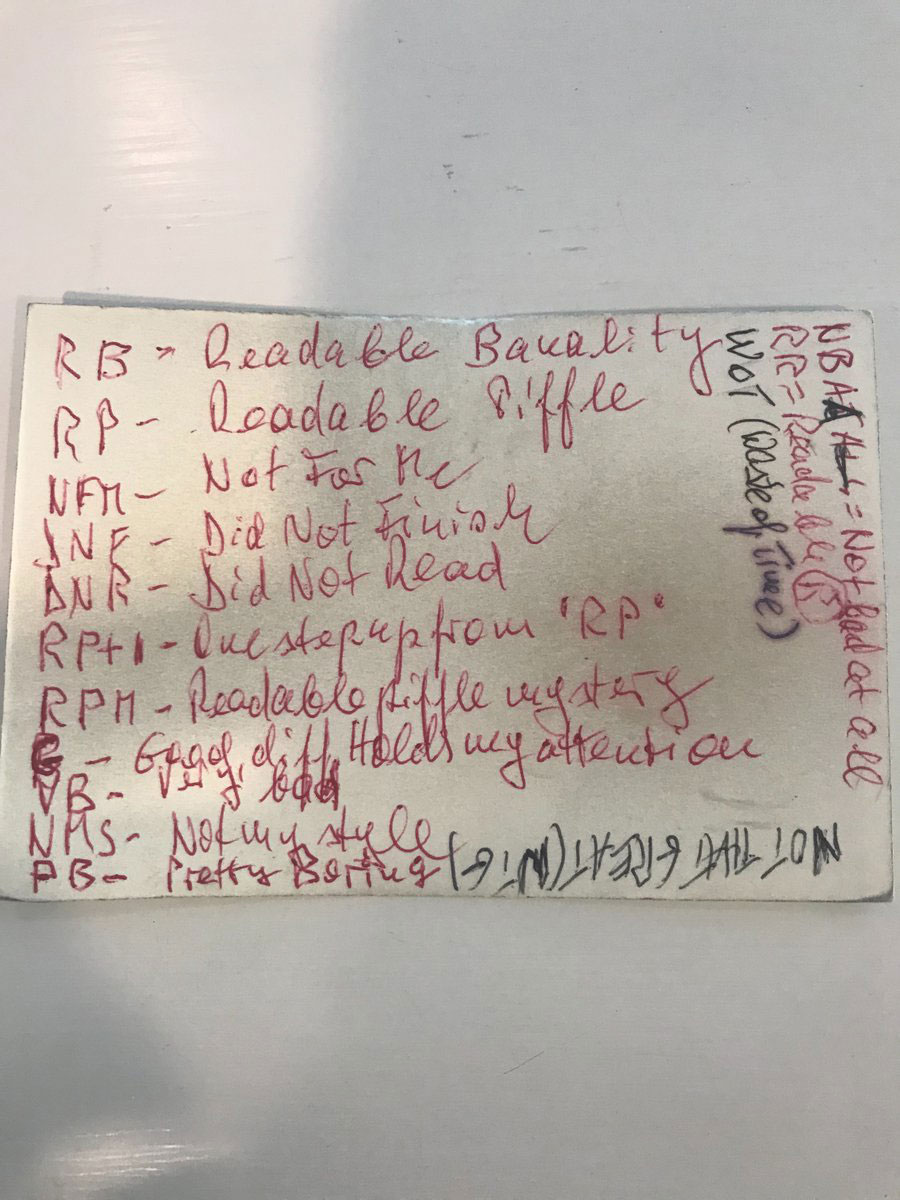 RB - Readable Banality
RP - Readable Piffle
NFM - Not For Me
DNF - Did Not Finish
DNR - Did Not Read
RP+1 - One step up from 'RP'
RPM - Readable piffle mystery
G - Good, diff. Holds my attention
VB - Very bad
NMS - Not my style
PB - Pretty Boring
NOT THAT GREAT (NTG)
WoT (Waste of Time)
RR = Readable
NBAA = Not bad at all